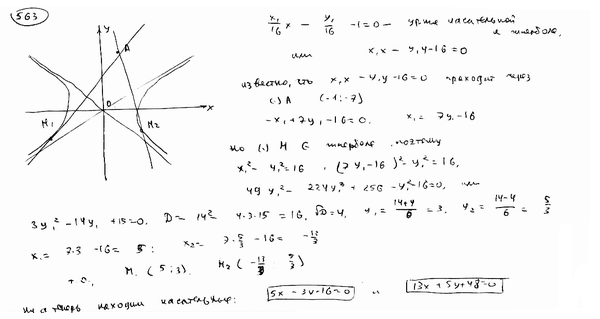 563
y
A
O
x
M₁
M₂
x₁/16 x - y₁/16 -1=0 - ур-ие касательной
к гиперболе,
или x₁x - y₁y-16=0
известно, что x₁x - y₁y-16=0 проходит через
(·) A (-1;-7)
-x₁+7y₁-16=0. x₁= 7y₁-16
Но (·) M ∈ гиперболе, поэтому
x₁²- y₁²=16, (7y₁-16)²- y₁²=16,
49y₁²- 224y₁ + 256 -y₁²-16=0, или
3y₁²-14y₁ +15=0. D= 14²- 4·3·15 = 16, √D=4, y₁= (14+4)/6 = 3, y₂= (14-4)/6 = 5/3
x₁= 7·3 -16= 5; x₂= 7·5/3 -16= -13/3
M₁ (5;3). M₂ (-13/3; 5/3)
Ну а теперь находим касательные: 5x - 3y-16=0 и 13x + 5y+48=0